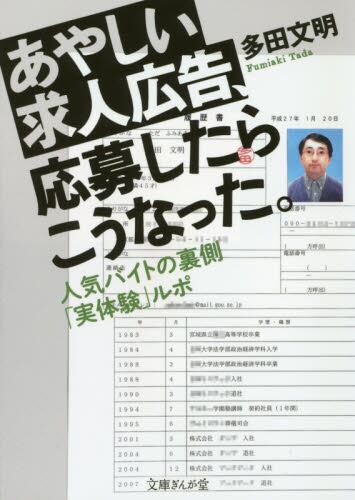 あやしい
求人広告、
応募したら
こうなった。
多田文明
Fumiaki Tada
人気バイトの裏側
「実体験」ルポ
履歴書
平成27年 1月 20日
ただ ふみあ
田 文明
満45才)
090-
(方呼出)
電話番号
( )
(方呼出)
連絡先
@mail.gou.ne.jp
年 月 学歴・職歴
1983 3 宮城県立 高等学校卒業
1984 4 大学法学部政治経済学科入学
1988 3 大学法学部政治経済学科卒業
1988 4 入社
1990 4 退社
1994 7 学園塾講師 契約社員(1年間)
1995 6 葬儀司会
2001 3 株式会社 入社
2001 5 株式会社 退社
2004 12 株式会社 入社
2007 株式会社 退社
文庫ぎんが堂